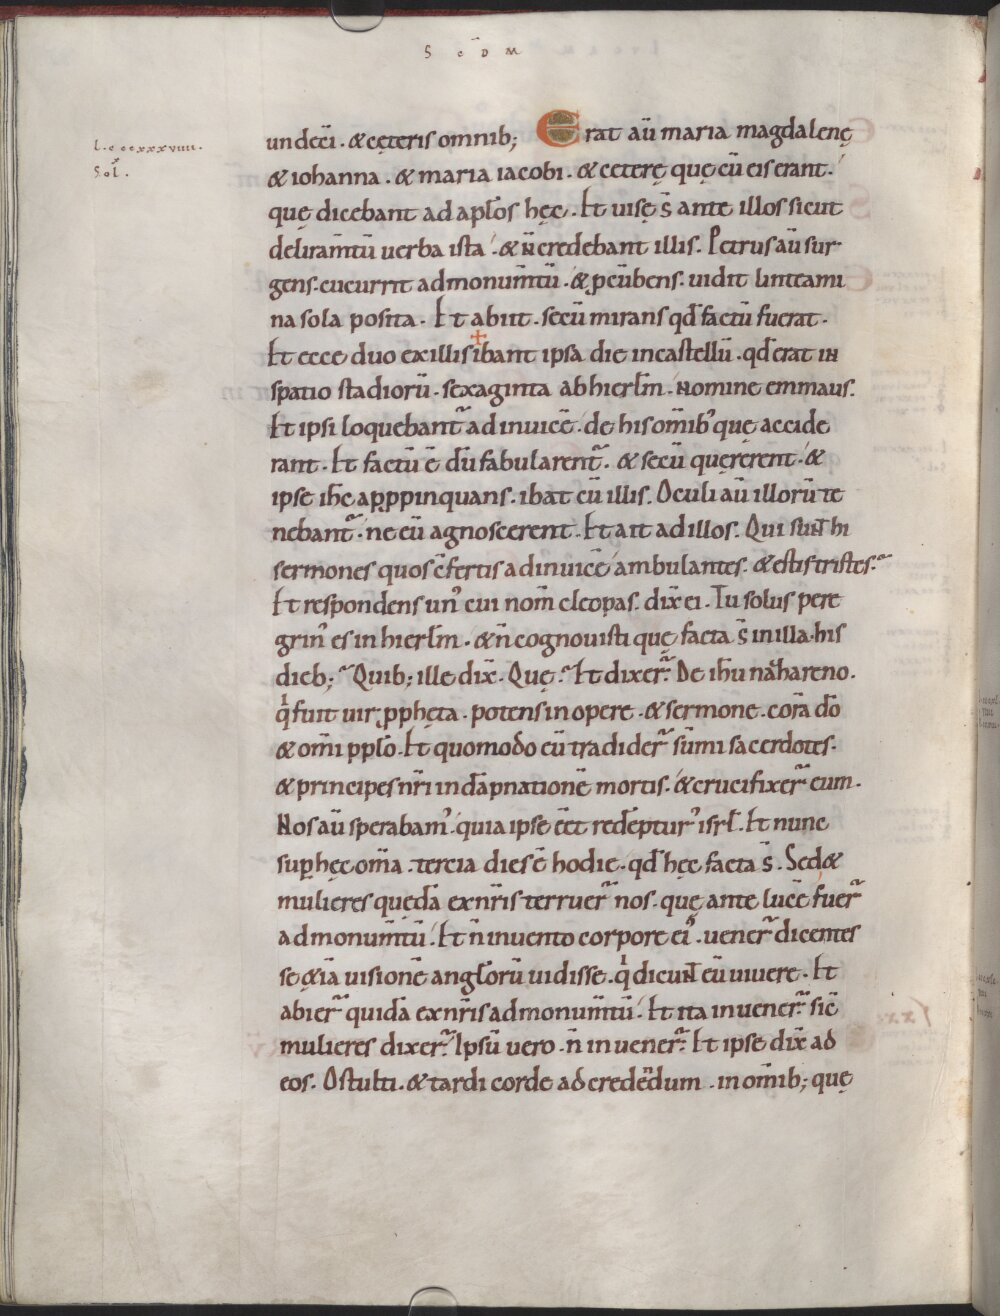 S c̄ D M
L. cccxxxviiii.
Sol̄.
undeci̅ . & cęteris omnib; Erat au̅ maria magdalenę
& iohanna . & maria iacobi . & ceterę quę cu̅ eis erant .
quę dicebant ad apl̅os hęc . Et uisę s̅ ante illos sicut
deliram̅tu̅ uerba ista . & n̅ credebant illis . Petrus au̅ sur
gens . cucurrit ad monum̅tu̅ . & ꝓcu̅bens . uidit linteami
na sola posita . Et abiit . secu̅ mirans qd̅ factu̅ fuerat .
Et ecce duo ex illis ibant ipsa die in castellu̅ . qd̅ erat in
spatio stadioru̅ . sexaginta ab hierl̅m . nomine emmaus .
Et ipsi loquebant᷑ ad inuice̅ . de his om̅ib᾽ quę accide
rant . Et factu̅ e̅ du̅ fabularent᷑ . & secu̅ quęrerent . &
ipse ih̅c apꝓpinquans . ibat cu̅ illis . Oculi au̅ illoru̅ te
nebant᷑ . ne eu̅ agnoscerent . Et ait ad illos . Qui sunt hi
sermones quos c̅fertis ad inuice̅ ambulantes . & estis tristes .
Et respondens un᾽ cui nom̅ cleopas . dix̅ ei . Tu solus pere
grin᾽ es in hierl̅m . & n̅ cognouisti quę facta s̅ in illa his
dieb; Quib; ille dix̅ . Quę . Et dixer᷑ . De ih̅u nazareno .
qͥ fuit uir ꝓphęta . potens in opere . & sermone . cora̅ d̅o
& om̅i ppl̅o . Et quomodo eu̅ tradider᷑ su̅mi sacerdotes .
& principes nr̅i in da̅pnatione̅ mortis . & crucifixer᷑ eum .
Nos au̅ sperabam᾽ . quia ipse e̅et rede̅ptur᾽ isrl̅ . Et nunc
suꝑ hęc om̅a . tercia dies e̅ hodie . qd̅ hęc facta s̅ . Sed &
mulieres quęda̅ ex nr̅is terruer᷑ nos . quę ante luce̅ fuer᷑
ad monum̅tu̅ . Et n̅ inuento corpore ei᾽ . uener᷑ dicentes
se &ia̅ uisione̅ angl̅oru̅ uidisse . qͥ dicunt eu̅ uiuere . Et
abier᷑ quida̅ ex nr̅is ad monum̅tu̅ . Et ita inuener᷑ . sic̅
mulieres dixer᷑ . Ipsu̅ uero . n̅ inuener᷑ . Et ipse dix̅ ad
eos . O stulti . & tardi corde ad crede̅dum . in om̅ib; quę